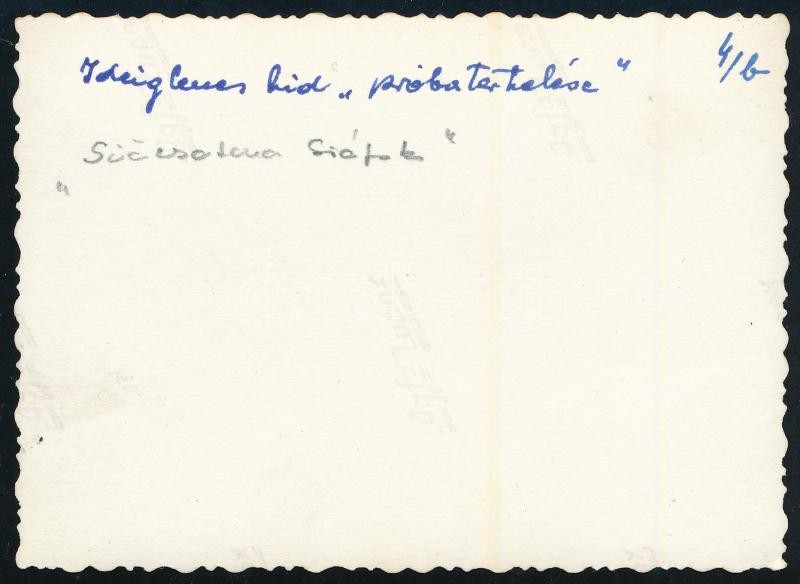 Ideiglenes híd „próbaterhelése" 4/b
„Siócsatorna Siófok"